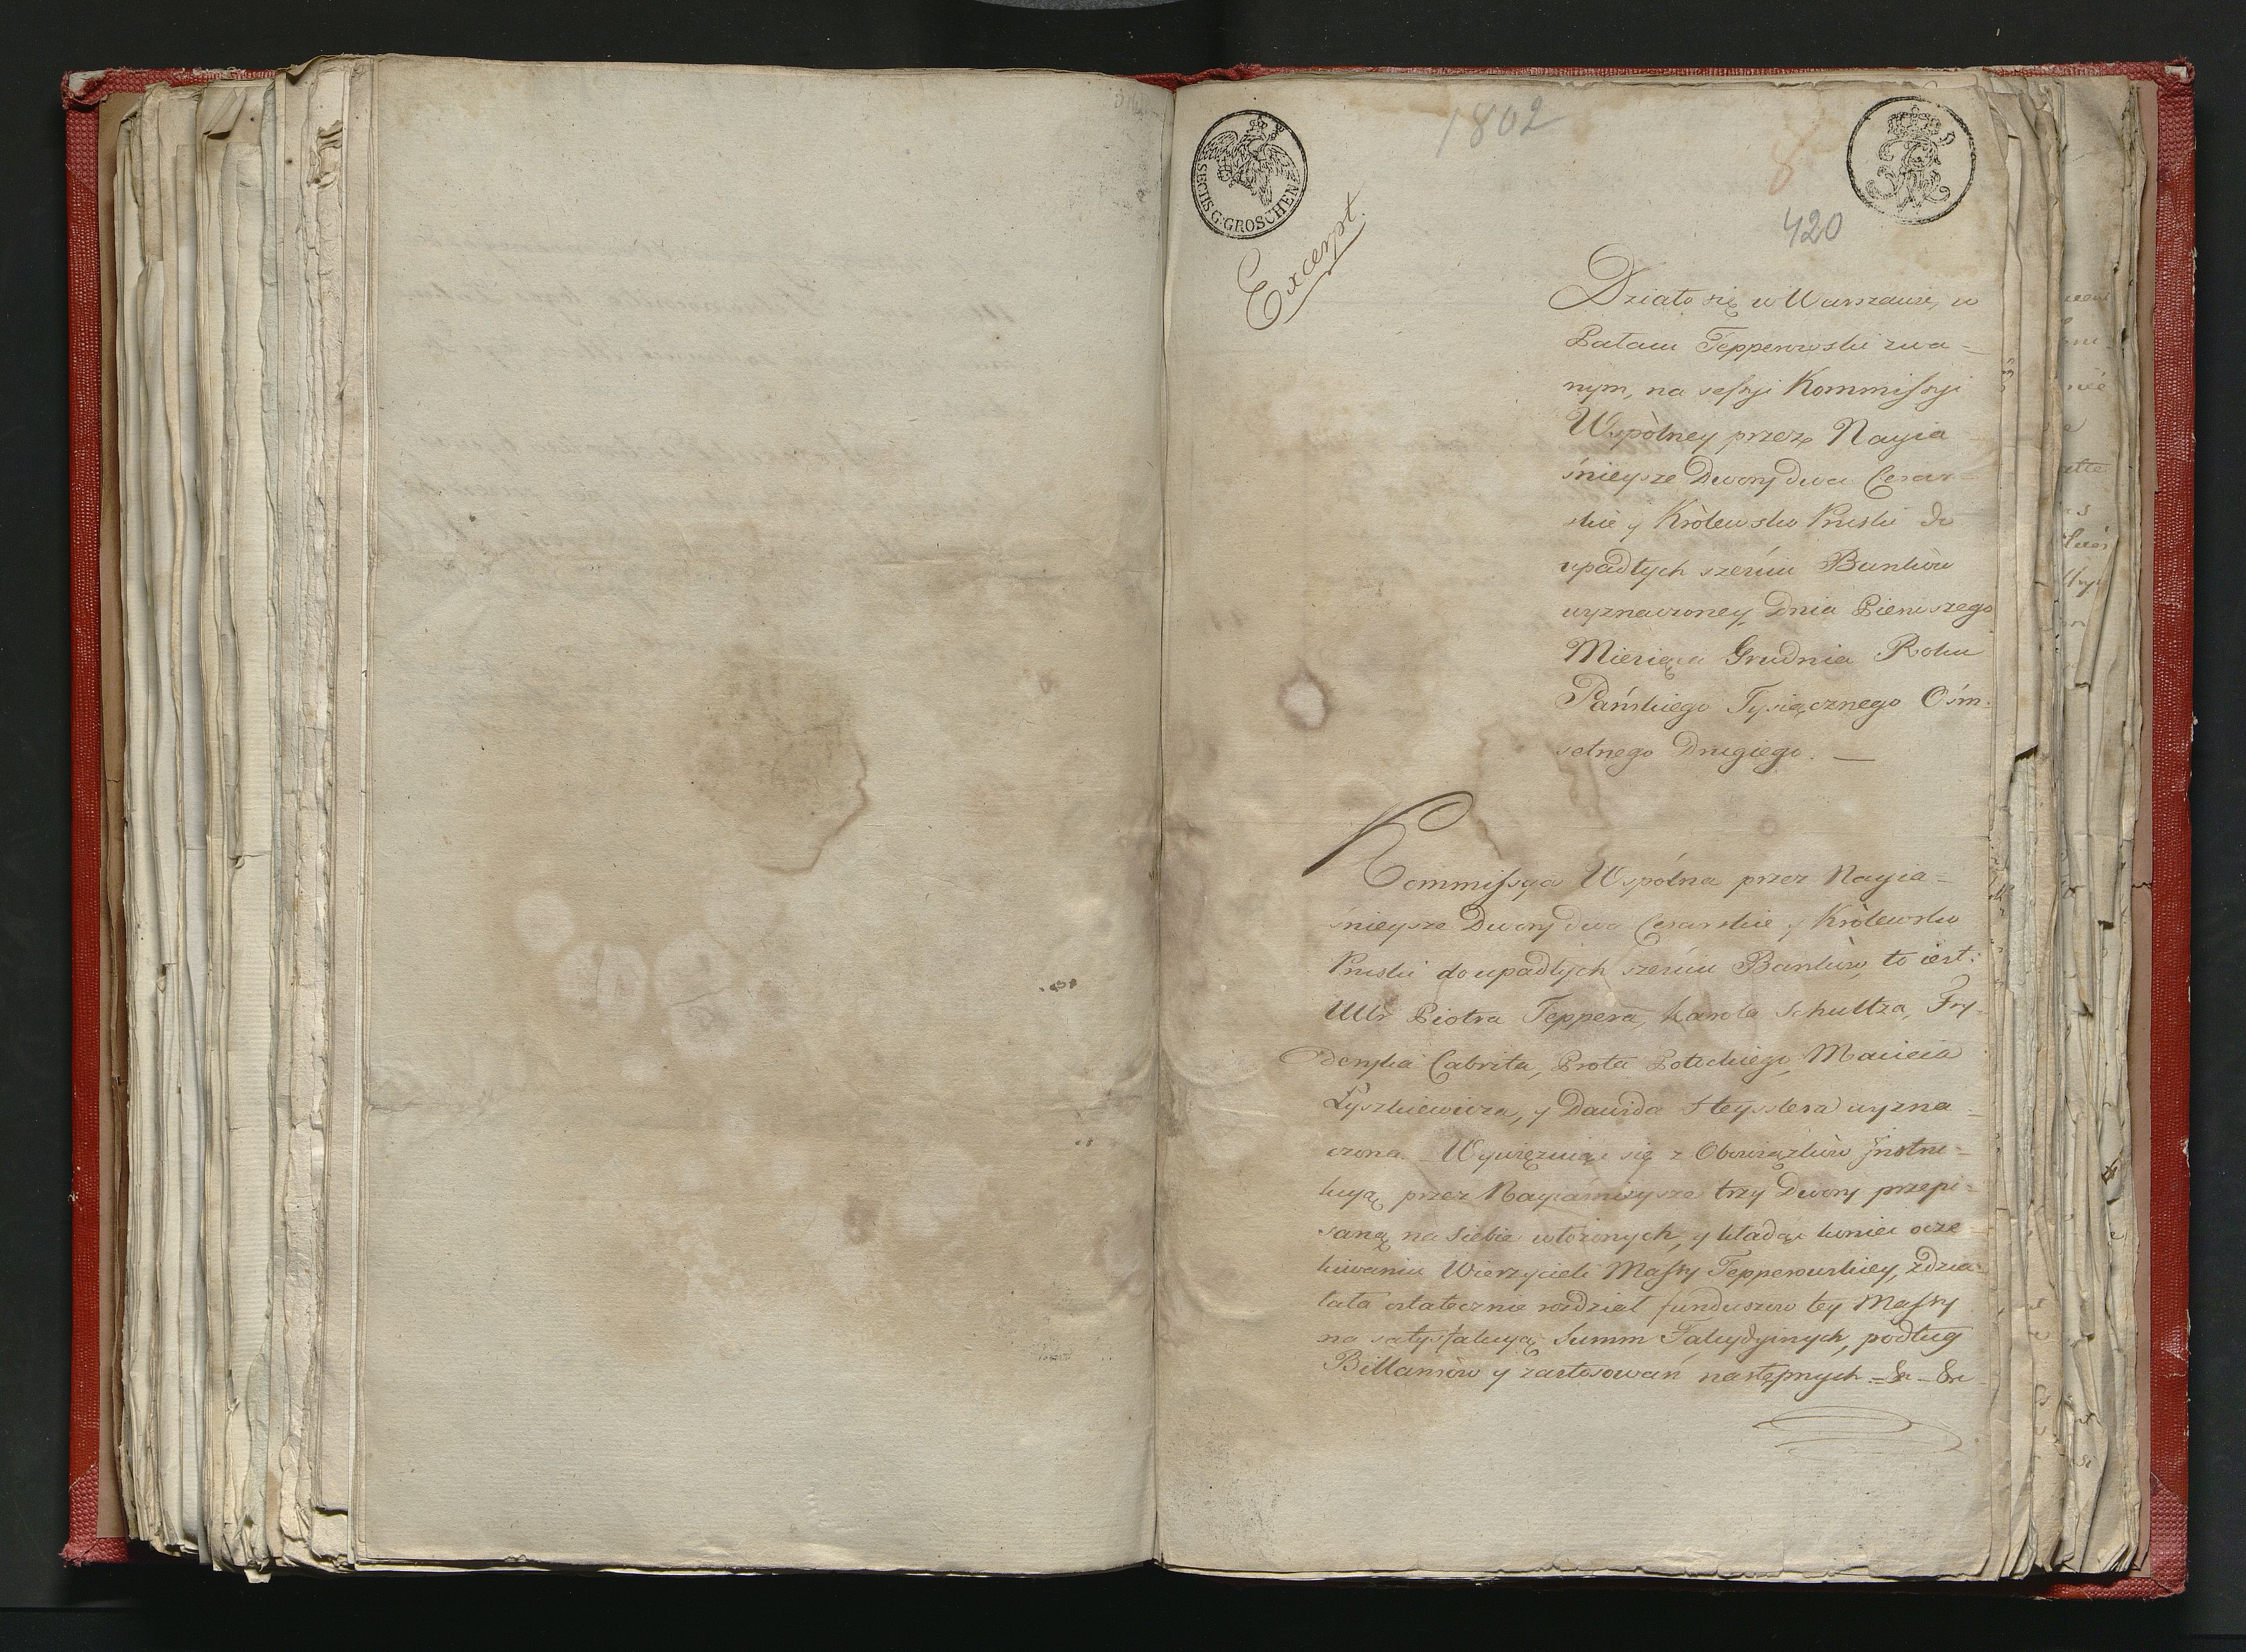 1802
SECHS G:GROSCHEN
8
420
Excerpt.
Działo się w Warszawie, w
Pałacu Tepperowski zwa-
nym, na sessyi Kommissyi
Wspólney przez Nayia
śnieysze Dwory dwa Cesar
skie y Królewsko Pruski do
upadłych sześciu Banków
wyznaczoney, Dnia Pierwszego
Miesiąca Grudnia Roku
Pańskiego Tysiącznego Ośm-
setnego Drugiego. —
Kommissya Wspólna przez Nayia-
śnieysze Dwory dwa Cesarskie y Królewsko
Pruski do upadłych sześciu Banków, to iest:
Ur Piotra Teppera, Karola Schultza, Fry-
deryka Cabrita, Prota Potockiego, Macieia
Łyszkiewicza, y Dawida Heyslera wyzna-
czona. Wywięzuiąc się z Obowiązków Jnstru-
kcyą przez Nayiaśnieysze trzy Dwory przepi-
saną na siebie włożonych, y kładąc koniec ocze
kiwaniu Wierzycieli Massy Tepperowskiey, zdzia-
łała ostatecznie rozdział funduszów tey Massy
na satysfakcyą Summ Falcydyinych, podług
Billansów y zastosowań następnych - &c - &c